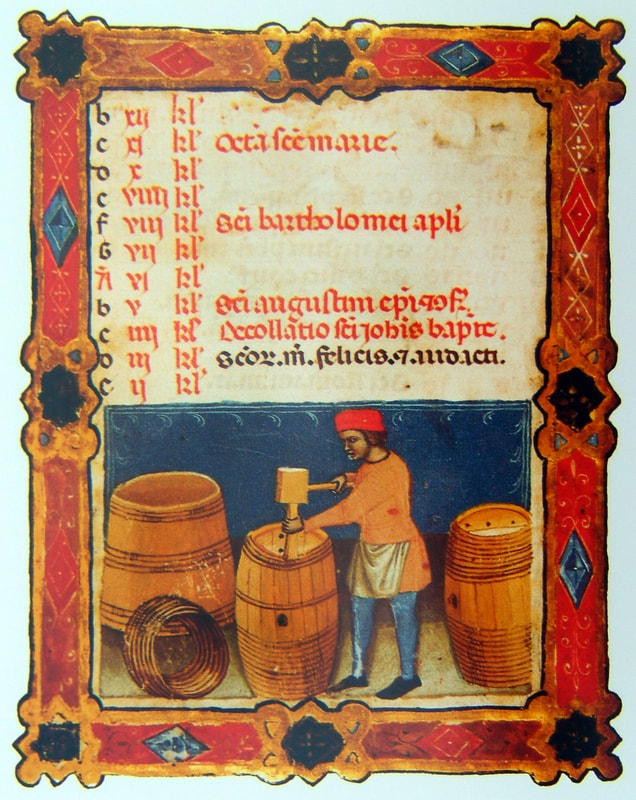 b xij kl'
c xj kl' Octa scē marie.
D x kl'
c viiij kl'
f viij kl' Sci bartholomei apli
G vij kl'
A vj kl'
b v kl' Sci augustini epi & 9f.
c iiij kl' Decollatio sci iohis bapte.
D iij kl' Scōr. m. felicis. 7. audacti.
c ij kl'